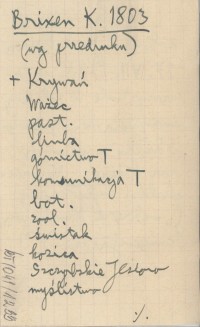 Brixen K. 1803
(wg przedruku)
+ Krywań
Ważec
past.
limba
górnictwo T
komunikacja T
bot.
zool.
świstak
kozica
Szczyrbskie Jezioro
myślistwo
./.